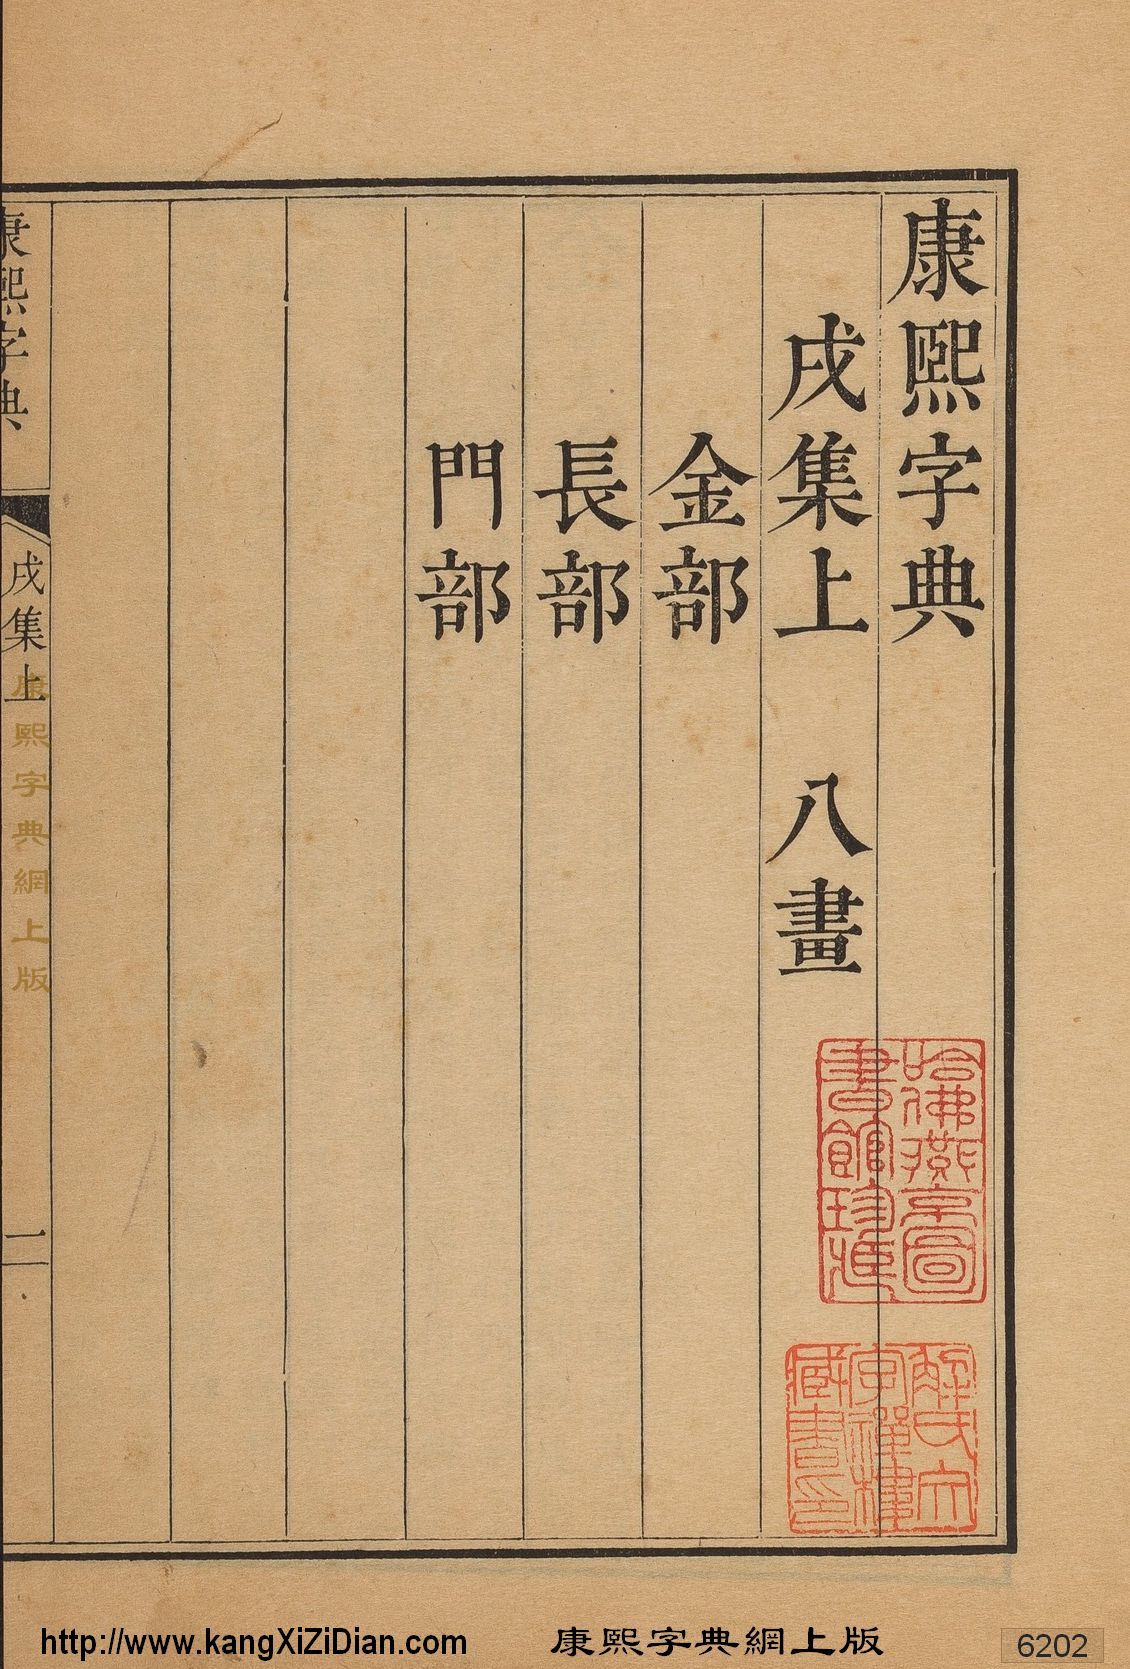 康熙字典
戌集上 八畫
金部
長部
門部
康熙字典
戌集上
一
康熙字典網上版
哈佛燕京圖
書館珍藏
藏書印
http://www.kangXiZiDian.com 康熙字典網上版 6202